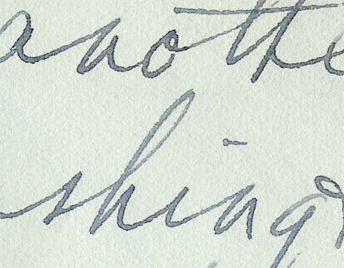 anothe
shing